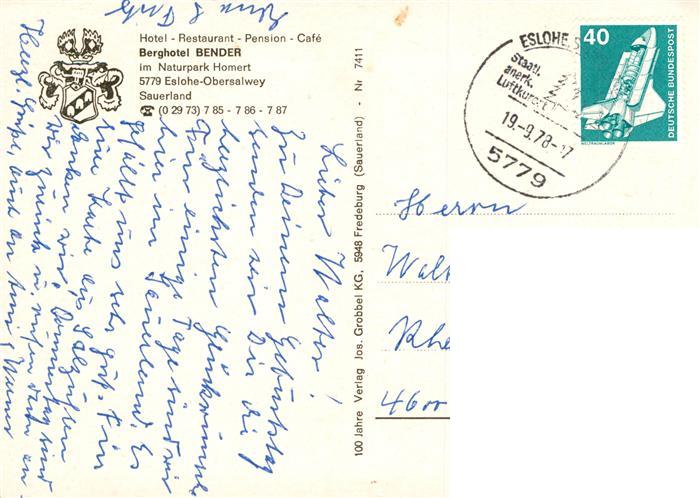 Hotel - Restaurant - Pension - Café
Berghotel BENDER
im Naturpark Homert
5779 Eslohe-Obersalwey
Sauerland
☎ (0 29 73) 7 85 - 7 86 - 7 87
Lieber Walter!
Zu Deinem Geburtstag
senden wir Dir die
herzlichsten Glückwünsche
Für einige Tage sind wir
hier im Sauerland. Es
gefällt uns sehr gut. Für
Deine Karte aus Salzuflen
danken wir. Donnerstag sind
wir zurück u. rufen dann an.
Herzl. Grüße, auch an
100 Jahre Verlag Jos. Grobbel KG, 5948 Fredeburg (Sauerland) - Nr 7411
ESLOHE, S
Staatl.
anerk.
Luftkurort
19.-9.78-17
5779
40
DEUTSCHE BUNDESPOST
WELTRAUMLABOR
Herrn
Walt
Rhe
4600